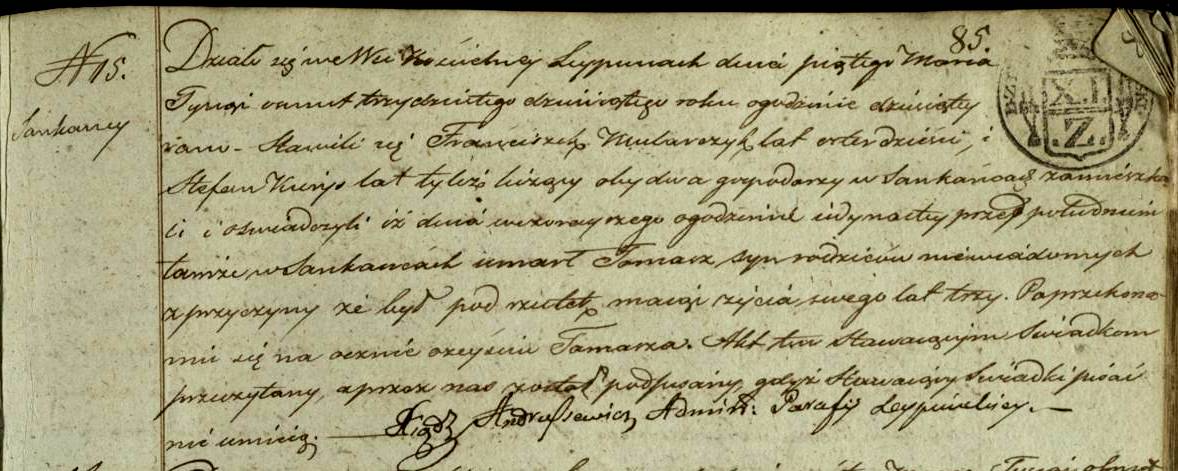 85.
N 15.
Sankańcy
Działo się we Wsi Kościelney Leypunach dnia piątego Marca
Tysiąc osmset trzydziestego dziewiątego roku o godzinie dziesiątey
rano - Stawili się Franciszek Mularczyk lat czterdzieści, i
Stefan lat tyleż liczący obydwa gospodarzy w Sankańcach zamieszka
li i oświadczyli iż dnia wczorayszego o godzinie iedynastey przed południem
tamże w Sankańcach umarł Tomasz, syn rodziców niewiadomych
z przyczyny że był pod rzutek, maiąc życia swego lat trzy. Po przekona-
niu się na ocznie o zeyściu Tomasza. Akt ten stawaiącym Swiadkom
przeczytany, a przez nas został podpisany, gdyż Stawaiący Swiadki pisać
nie umieią. — Xiądz Andruszewicz Admin: Parafij Leypuńskiey. —
X.I.
Z.